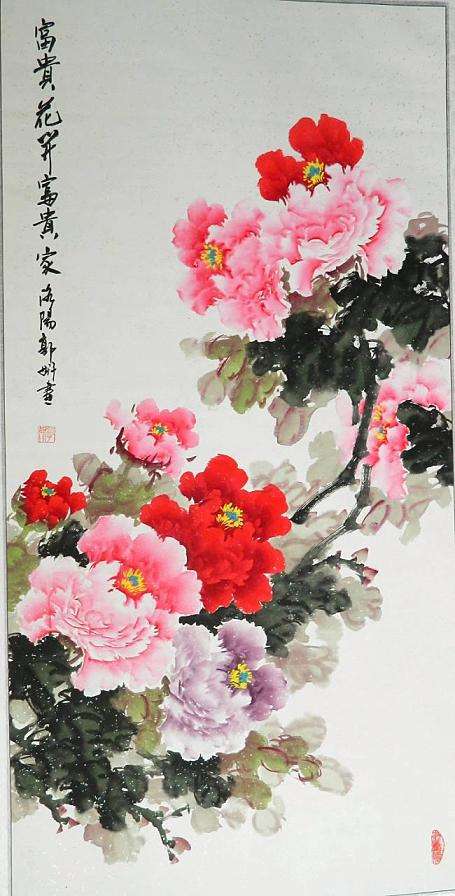 富貴花开富貴家
洛陽郭妍畫